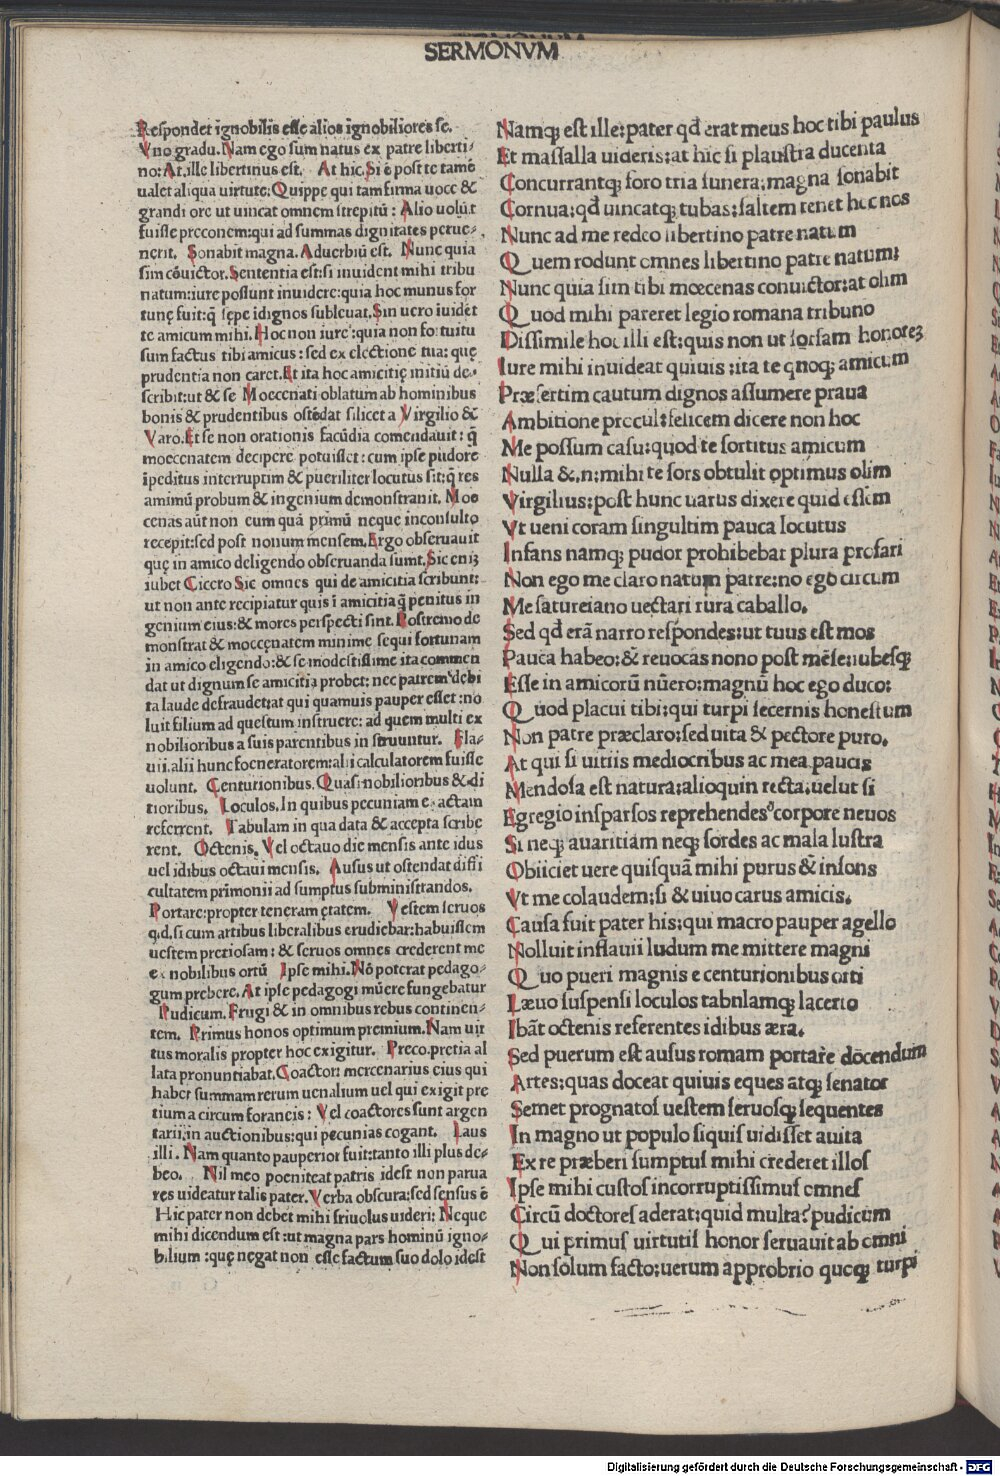 SERMONVM
Respondet ignobilis esse alios ignobiliores se.
Vno gradu. Nam ego sum natus ex patre liberti-
no: At, ille libertinus est. At hic. Si ē post te tamē
ualet aliqua uirtute: Quippe qui tam firma uoce &
grandi ore ut uincat omnem strepitū: Alio uolūt
fuisse preconem: qui ad summas dignitates perue-
nerit. Sonabit magna. Aduerbiū est. Nunc quia
sim cōuictor. Sententia est: si inuident mihi tribu
natum: iure possunt inuidere: quia hoc munus for
tunę fuit: q̄ sępe idignos subleuat. Sin uero iuidēt
te amicum mihi. Hoc non iure: quia non fortuitu
sum factus tibi amicus: sed ex electione tua: quę
prudentia non caret. Et ita hoc amicitię initiū de-
scribit: ut & se Moecenati oblatum ab hominibus
bonis & prudentibus ostēdat silicet a Virgilio &
Varo. Et se non orationis facūdia comendauit: q̄
moecenatem decipere potuisset: cum ipse pudore
īpeditus interruptim & pueriliter locutus sit: q̄ res
amimū probum & ingenium demonstranit. Moe
cenas aūt non eum quā primū neque inconsulto
recepit: sed post nonum mensem. Ergo obseruauit
quę in amico deligendo obseruanda sumt. Sic eniȝ
iubet Cicero Sic omnes qui de amicitia scribunt:
ut non ante recipiatur quis ī amicitia q̄ penitus in
genium eius: & mores perspecti sint. Postremo de
monstrat & moecęnatem minime sequi fortunam
in amico eligendo: & se modestissime ita commen
dat ut dignum se amicitia probet: nec patrem debi
ta laude defraudet: at qui quamuis pauper esset: no
luit filium ad questum instruere: ad quem multi ex
nobilioribus a suis parentibus in struuntur. Fla-
uii. alii hunc foeneratorem: alii calculatorem fuisse
uolunt. Centurionibus. Quasi nobilioribus & di
tioribus. Loculos. In quibus pecuniam exactam
referrent. Tabulam in qua data & accepta scribe
rent. Octenis. Vel octauo die mensis ante idus
uel idibus octaui mensis. Ausus ut ostendat diffi
cultatem primonii ad sumptus subministrandos.
Portare: propter teneram ętatem. Vestem seruos
q.d. si cum artibus liberalibus erudiebar: habuissem
uestem pretiosam: & seruos omnes crederent me
ex nobilibus ortū Ipse mihi. Nō poterat pedago-
gum prebere. At ipse pedagogi mūere fungebatur
Pudicum. Frugi & in omnibus rebus continen-
tem. Primus honos optimum premium. Nam uir
tus moralis propter hoc exigitur. Preco. pretia al
lata pronuntiabat. Coactor: mercenarius eius qui
haber summam rerum uenalium uel qui exigit pre
tium a circum foraneis: Vel coactores sunt argen
tarii: in auctionibus: qui pecunias cogant. Laus
illi. Nam quanto pauperior fuit: tanto illi plus de-
beo. Nil me poeniteat patris idest non parua
res uideatur talis pater. Verba obscura: sed sensus ē
Hic pater non debet mihi friuolus uideri: Neque
mihi dicendum est: ut magna pars hominū igno-
bilium: quę negat non esse factum suo dolo idest
Namqꝫ est ille: pater qđ erat meus hoc tibi paulus
Et massalla uideris: at hic si plaustra ducenta
Concurrantqꝫ foro tria funera: magna sonabit
Cornua: qđ uincatqꝫ tubas: saltem tenet hoc nos
Nunc ad me redeo libertino patre natum
Quem rodunt omnes libertino patre natum:
Nunc quia sim tibi mœcenas conuictor: at olim
Quod mihi pareret legio romana tribuno
Dissimile hoc illi est: quis non ut forsam honoreȝ
Iure mihi inuideat quiuis: ita te qnoqꝫ amicum
Præsertim cautum dignos assumere praua
Ambitione procul: felicem dicere non hoc
Me possum casu: quod te sortitus amicum
Nulla &.n: mihi te sors obtulit optimus olim
Virgilius: post hunc uarus dixere quid essem
Vt ueni coram singultim pauca locutus
Infans namqꝫ pudor prohibebat plura profari
Non ego me claro natum patre: no ego circum
Me satureiano uectari rura caballo.
Sed qđ erā narro respondes: ut tuus est mos
Pauca habeo: & reuocas nono post mēse: iubesqꝫ
Esse in amicorū nūero: magnū hoc ego duco:
Quod placui tibi: qui turpi secernis honestum
Non patre præclaro: sed uita & pectore puro.
At qui si uitiis mediocribus ac mea paucis
Mendosa est natura: alioquin recta: uelut si
Egregio insparsos reprehendes corpore neuos
Si neqꝫ auaritiam neqꝫ sordes ac mala lustra
Obiiciet uere quisquā mihi purus & insons
Vt me colaudem: si & uiuo carus amicis.
Causa fuit pater his: qui macro pauper agello
Nolluit inflauii ludum me mittere magni
Quo pueri magnis e centurionibus orti
Læuo suspensi loculos tabnlamqꝫ lacerto
Ibāt octenis referentes idibus æra.
Sed puerum est ausus romam portare docendum
Artes: quas doceat quiuis eques atqꝫ senator
Semet prognatos uestem seruosqꝫ sequentes
In magno ut populo siquis uidisset auita
Ex re præberi sumptus mihi crederet illos
Ipse mihi custos incorruptissimus omnes
Circū doctores aderat: quid multa? pudicum
Qui primus uirtutis honor seruauit ab omni
Non solum facto: uerum approbrio quoqꝫ turpi
Digitalisierung gefördert durch die Deutsche Forschungsgemeinschaft - DFG